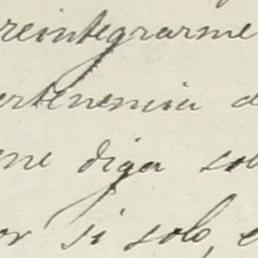 reintegrarme
ertenencia d
me diga sob
or si solo, e